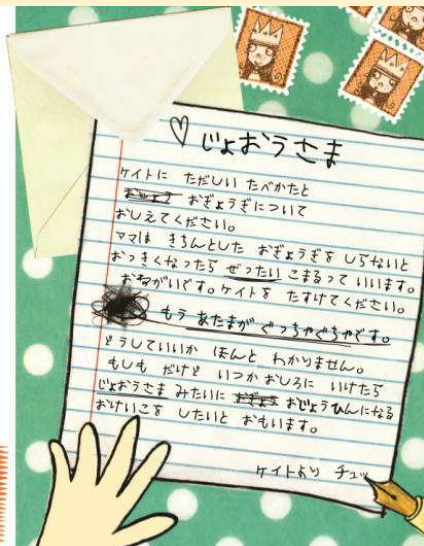 ♡ じょおうさま
ケイトに ただしい たべかたと
おぎょうぎについて
おしえてください。
ママは きちんとした おぎょうぎを しらないと
おっきくなったら ぜったい こまるって いいます。
おねがいです。ケイトを たすけてください。
もう あたまが ぐっちゃぐちゃです。
どうしていいか ほんと わかりません。
もしも だけど いつか おしろに いけたら
じょおうさま みたいに おじょうひんになる
おけいこを したいと おもいます。
ケイトより チュッ